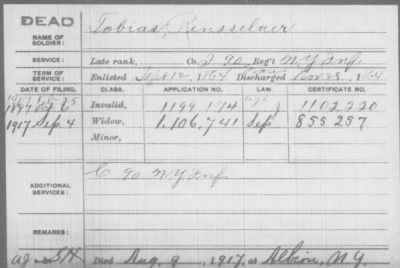 DEAD
NAME OF SOLDIER: Tobias, Rensselaer
SERVICE: Late rank, Co. I 90 Reg't N.Y. Inf.
TERM OF SERVICE: Enlisted Sept 12, 1864 Discharged Nov 28, 1864
DATE OF FILING. CLASS. APPLICATION NO. LAW. CERTIFICATE NO.
1897 Invalid. 1199 174 1102220
1917 Sep. 4 Widow. 1.106,741 Sep 855 257
Minor.
ADDITIONAL SERVICES: C 90 N.Y. Inf.
REMARKS:
Died Aug. 9, 1917, at Albion, N.Y.